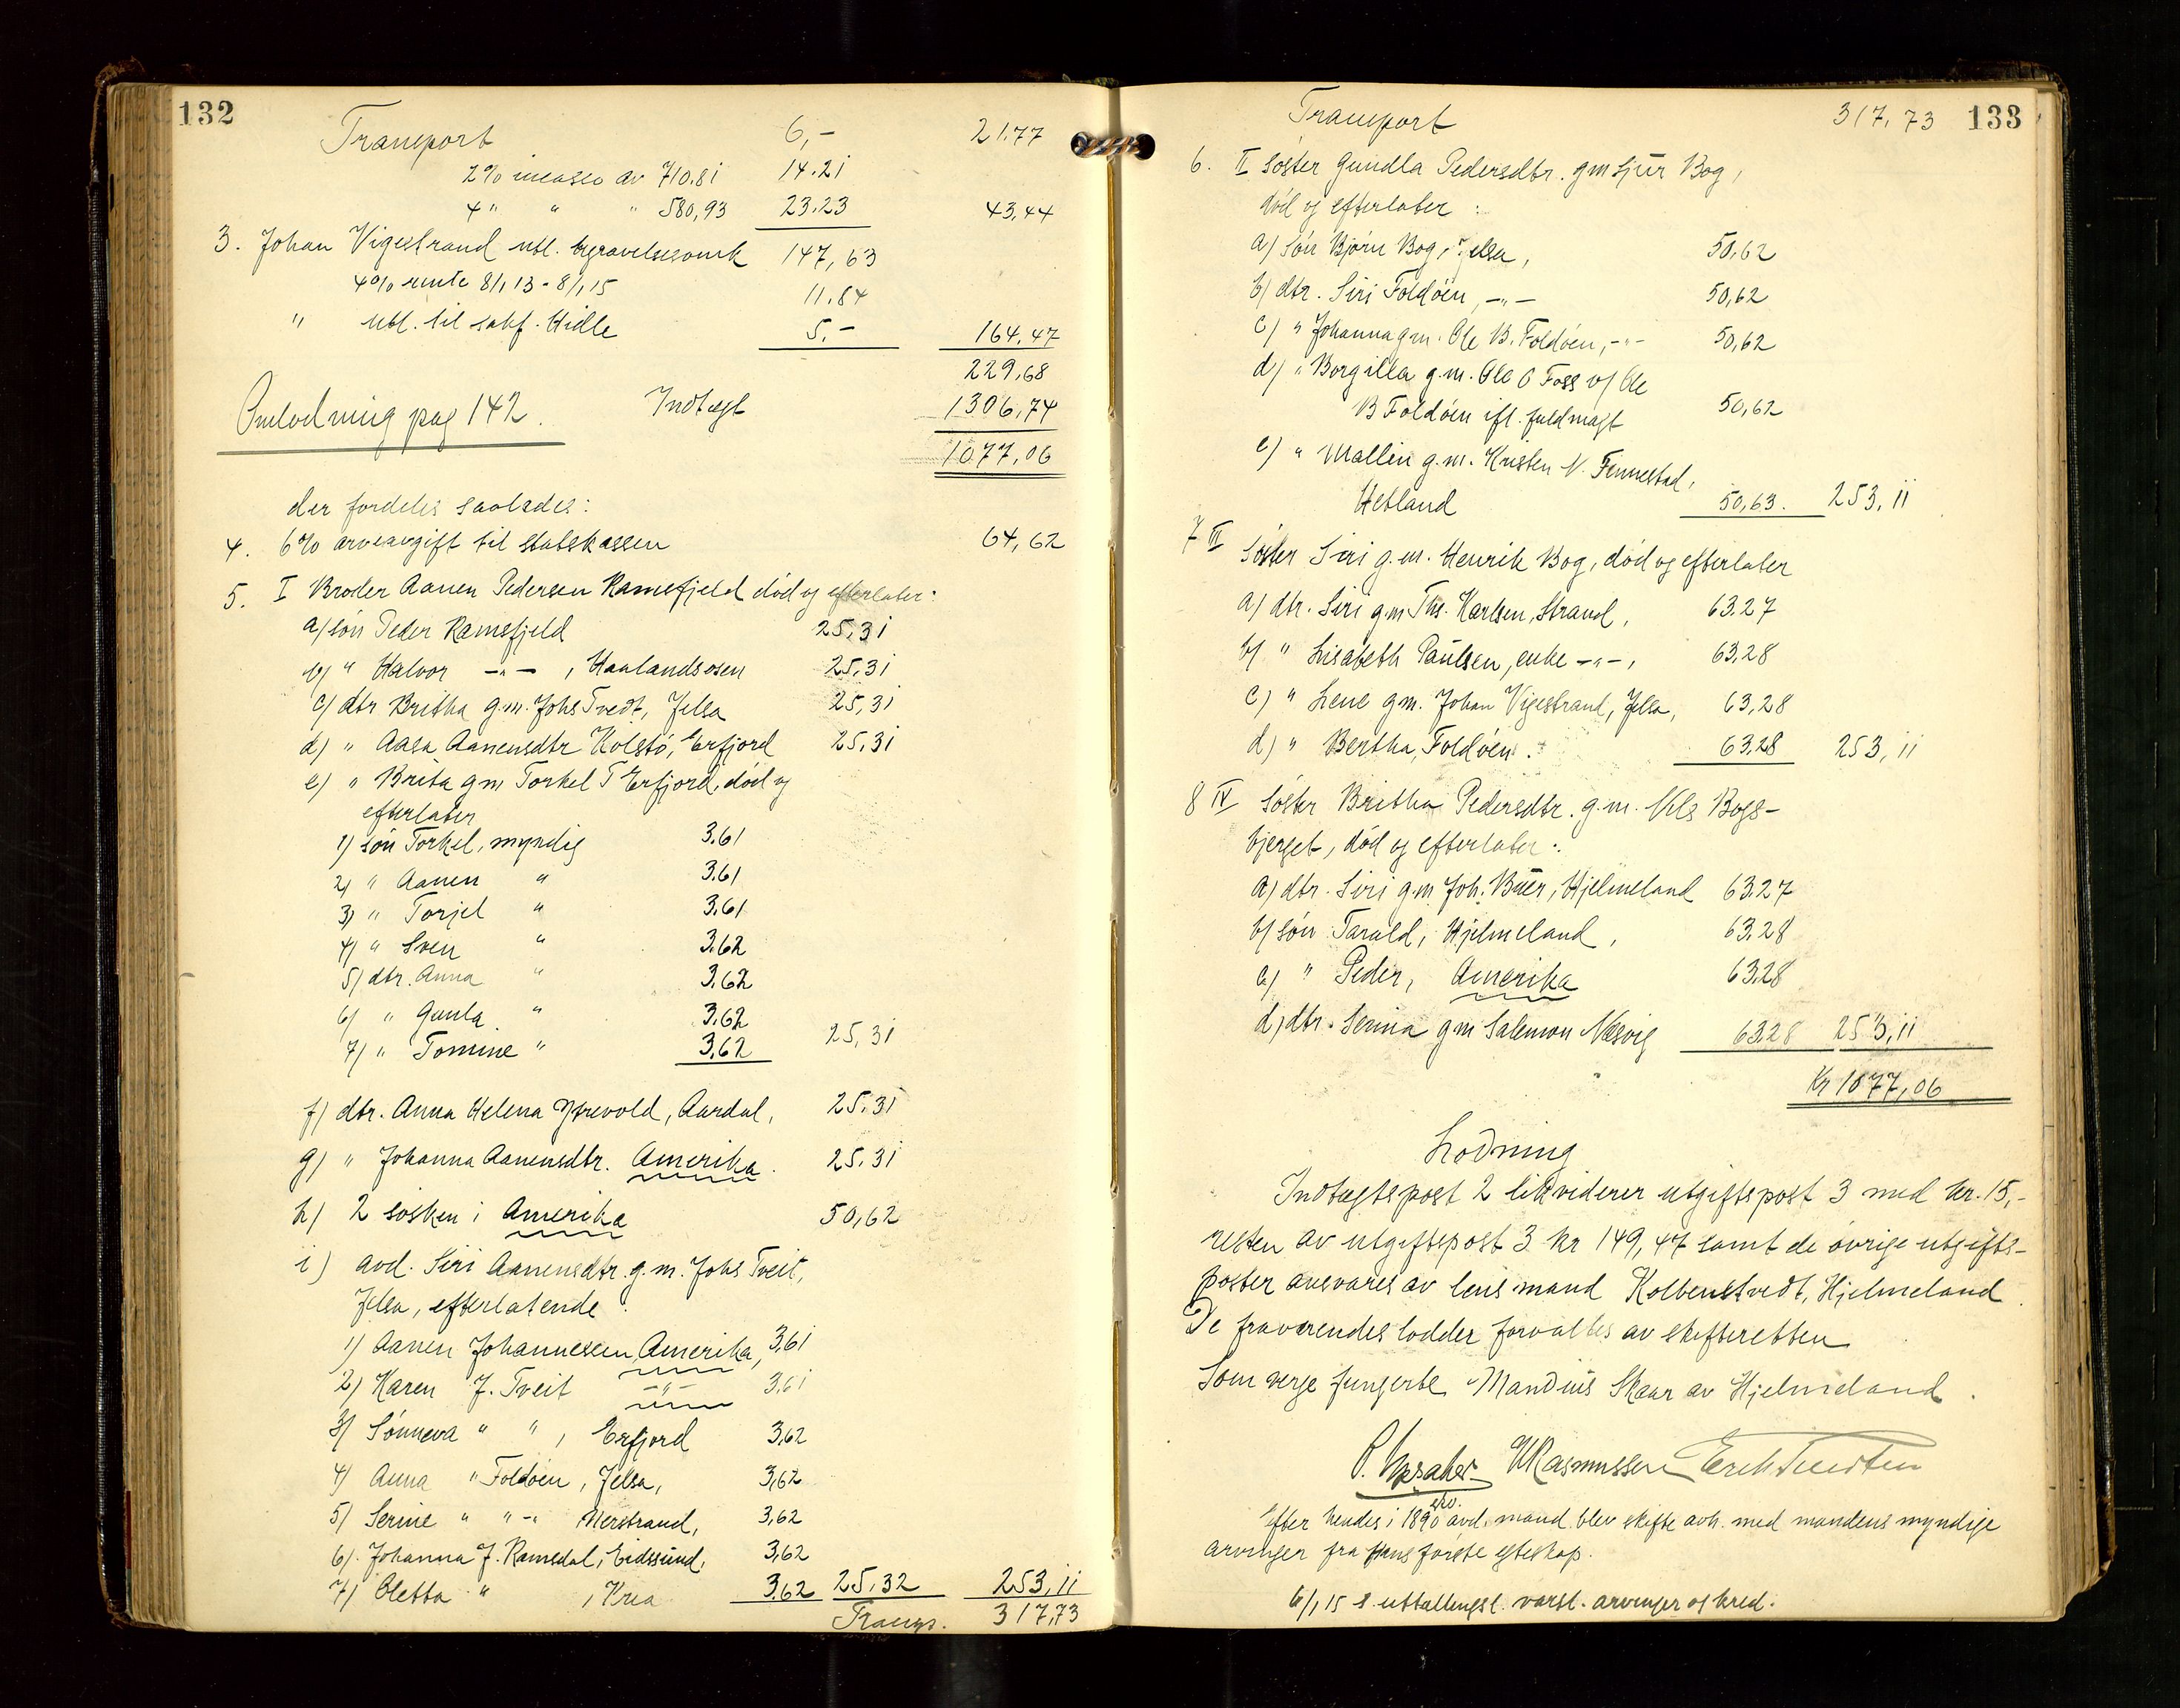 132
Transport 6,- 21.77
2% incasso av 710.81 14.21
4 " " " 580,93 23.23 43,44
3. Johan Vigestrand utl. begravelsesomk 147,63
4% rente 8/1 13 - 8/1 15 11.84
" utl. til sakf. Hidle 5.- 164,47
229,68
Omlodning pag 142. Indtægt 1306,74
1077,06
der fordeles saaledes:
4. 6% arveavgift til statskassen 64,62
5. I Broder Aanen Pedersen Ramsfjeld død og efterlater:
a) søn Peder Ramsfjeld 25,31
b) " Halvor -"- , Haalandsosen 25,31
c) dtr Britha g.m. Johs Tvedt, Jelsa 25,31
d) " Aasa Aanensdtr Kolstø, Erfjord 25,31
e) " Brita gm Torkel T Erfjord, død og
efterlater
1) søn Torkel, myndig 3.61
2) " Aanen " 3.61
3) " Torjel " 3,61
4) " Sven " 3.62
5) dtr. Anna " 3,62
6) " Gunla " 3,62
7) " Tomine " 3,62 25,31
f) dtr. Anna Helena Ytrevold, Aardal, 25,31
g) " Johanna Aanensdtr. Amerika. 25,31
h) 2 søsken i Amerika 50,62
i) avd. Siri Aanensdtr. g.m. Johs Tveit,
Jelsa, efterlatende:
1) Aanen Johannessen, Amerika, 3,61
2) Karen J. Tveit -"- 3,61
3) Sønneva " " , Erfjord 3,62
4) Anna " Foldøen, Jelsa, 3,62
5) Serine " "-" Nerstrand, 3,62
6) Johanna J. Ramsdal, Eidssund, 3,62
7) Oletta " , Kria 3.62 25,32 253,11
Transp. 317,73
Transport 317,73 133
6. II Søster Gundla Pedersdtr. gm Sjur Bog,
død og efterlater:
a) søn Bjørn Bog, Jelsa, 50,62
b) dtr. Siri Foldøen, -"- 50,62
c) " Johanna gm. Ole B. Foldøen, -"- 50,62
d) " Borgilla g.m. Ole O Foss v/ Ole
B Foldøen ifl. fuldmagt 50,62
e) " Mallin g.m. Kristen N. Finnestad,
Hetland 50,63. 253,11
7 III Søster Siri g.m. Henrik Bog, død og efterlater
a) dtr. Siri gm Ths. Karlsen, Strand, 63.27
b) " Lisabeth Paulsen, enke -"-, 63,28
c) " Lene gm. Johan Vigestrand, Jelsa, 63,28
d) " Bertha, Foldøen. 63,28 253,11
8 IV Søster Britha Pedersdtr. g.m. Nils Bogs-
bjerget, død og efterlater:
a) dtr. Siri gm Joh. Buer, Hjelmeland 63,27
b) søn Tarald, Hjelmeland, 63,28
c) " Peder, Amerika 63,28
d) dtr. Serina gm Salemon Næsvig 63,28 253,11
Kr 1077,06
Lodning
Indtægtspost 2 likviderer utgiftspost 3 med kr. 15,-
resten av utgiftspost 3 kr 149,47 samt de øvrige utgifts-
poster ansvares av lensmand Kolbenstvedt, Hjelmeland.
De fraværendes lodder forvaltes av skifteretten
Som verge fungerte Mandius Skaar av Hjelmeland.
Rasmussen
Efter hendes i 1890 avd. mand blev skifte avh. med mandens myndige
arvinger fra hans første egteskap.
6/1 15 s. uttallingst. varsl. arvinger og kred.